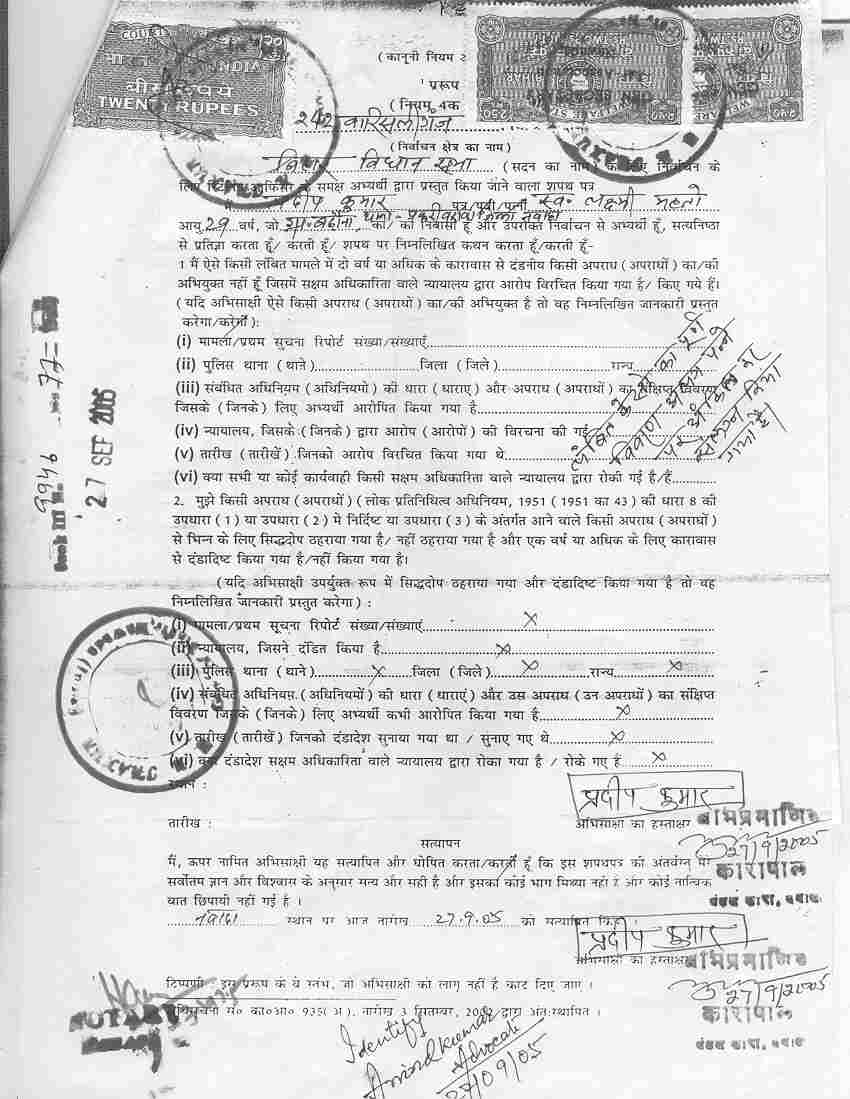 COURT
भारत INDIA
बीस रुपये
TWENTY RUPEES
(कानूनी नियम
प्ररूप
(नियम 4क
242 वारिसलीगंज
(निर्वाचन क्षेत्र का नाम)
बिहार विधान सभा (सदन का नाम) के लिए निर्वाचन के
लिए रिटर्निंग ऑफिसर के समक्ष अभ्यर्थी द्वारा प्रस्तुत किया जाने वाला शपथ पत्र
प्रदीप कुमार पुत्र/पुत्री/पत्नी स्व० लक्ष्मी महतो
आयु 29 वर्ष, जो थाना- पकरीबरावां जिला नवादा का/की निवासी हूँ और उपरोक्त निर्वाचन से अभ्यर्थी हूँ, सत्यनिष्ठा
से प्रतिज्ञा करता हूँ/ करती हूँ/ शपथ पर निम्नलिखित कथन करता हूँ/करती हूँ-
1 मैं ऐसे किसी लंबित मामले में दो वर्ष या अधिक के कारावास से दंडनीय किसी अपराध (अपराधों) का/की
अभियुक्त नहीं हूँ जिसमें सक्षम अधिकारिता वाले न्यायालय द्वारा आरोप विरचित किया गया है/ किए गये हैं।
(यदि अभिसाक्षी ऐसे किसी अपराध (अपराधों) का/की अभियुक्त है तो वह निम्नलिखित जानकारी प्रस्तुत
करेगा/करेगी):
(i) मामला/प्रथम सूचना रिपोर्ट संख्या/संख्याएँ
(ii) पुलिस थाना (थाने) जिला (जिले) राज्य
(iii) संबंधित अधिनियम (अधिनियमों) की धारा (धाराए) और अपराध (अपराधों) का संक्षिप्त विवरण
जिसके (जिनके) लिए अभ्यर्थी आरोपित किया गया है
(iv) न्यायालय, जिसके (जिनके) द्वारा आरोप (आरोपों) की विरचना की गई
(v) तारीख (तारीखें) जिनको आरोप विरचित किया गया थे
(vi) क्या सभी या कोई कार्यवाही किसी सक्षम अधिकारिता वाले न्यायालय द्वारा रोकी गई है/हैं
लंबित केसों का पूर्ण
विवरण अलग पन्ने
पर अंकित कर
संलग्न किया
गया है।
9946
27 SEP 2005
2. मुझे किसी अपराध (अपराधों) (लोक प्रतिनिधित्व अधिनियम, 1951 (1951 का 43) की धारा 8 की
उपधारा (1) या उपधारा (2) मे निर्दिष्ट या उपधारा (3) के अंतर्गत आने वाले किसी अपराध (अपराधों)
से भिन्न के लिए सिद्धदोष ठहराया गया है/ नहीं ठहराया गया है और एक वर्ष या अधिक के लिए कारावास
से दंडादिष्ट किया गया है/नहीं किया गया है।
(यदि अभिसाक्षी उपर्युक्त रूप में सिद्धदोष ठहराया गया और दंडादिष्ट किया गया है तो वह
निम्नलिखित जानकारी प्रस्तुत करेगा) :
(i) मामला/प्रथम सूचना रिपोर्ट संख्या/संख्याएं X
(ii) न्यायालय, जिसने दंडित किया है X
(iii) पुलिस थाना (थाने) X जिला (जिले) X राज्य X
(iv) संबंधित अधिनियम (अधिनियमों) की धारा (धाराएं) और उस अपराध (उन अपराधों) का संक्षिप्त
विवरण जिनके (जिनके) लिए अभ्यर्थी कभी आरोपित किया गया है X
(v) तारीख (तारीखें) जिनको दंडादेश सुनाया गया था / सुनाए गए थे X
(vi) क्या दंडादेश सक्षम अधिकारिता वाले न्यायालय द्वारा रोका गया है / रोके गए हैं X
स्थान :
प्रदीप कुमार
तारीख :
अभिसाक्षी का हस्ताक्षर
अभिप्रमाणित
27/9/2005
कारापाल
सत्यापन
मैं, ऊपर नामित अभिसाक्षी यह सत्यापित और घोषित करता/करती हूँ कि इस शपथपत्र की अंतर्वस्तु मेरे
सर्वोतम ज्ञान और विश्वास के अनुसार सत्य और सही है और इसका कोई भाग मिथ्या नहीं है और कोई तात्विक
बात छिपायी नहीं गई है।
नवादा स्थान पर आज तारीख 27.9.05 को सत्यापित किया
प्रदीप कुमार
अभिसाक्षी का हस्ताक्षर
अभिप्रमाणित
27/9/2005
कारापाल
टिप्पणी : इस प्ररूप के वे स्तंभ, जो अभिसाक्षी को लागू नहीं है काट दिए जाए।
अधिसूचना सं० का०आ० 935(अ), तारीख 3 सितम्बर, 2002 द्वारा अंतःस्थापित।
NOTARY
Identify
Arvind Kumar
Advocate
27/09/05